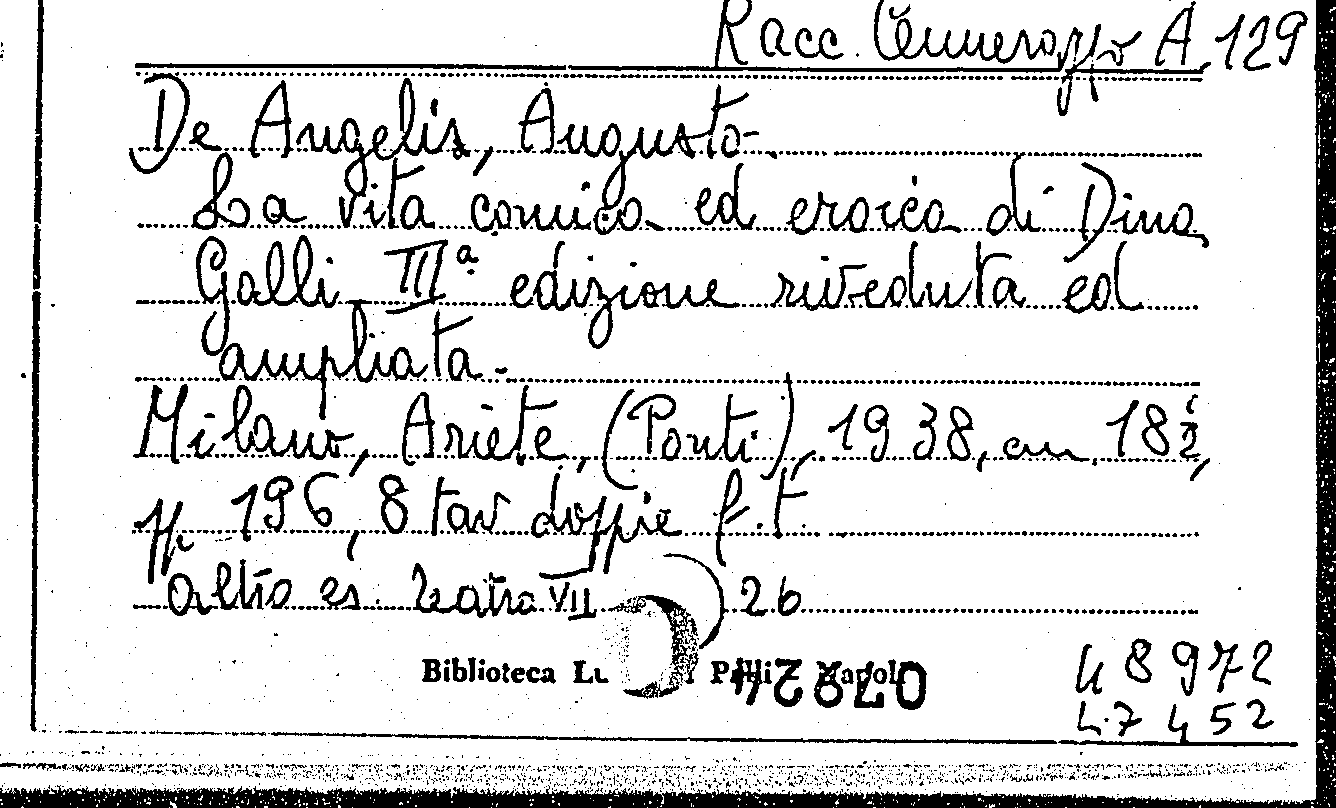 Racc. Cennerazzo A. 129
De Angelis, Augusto.
La vita comica ed eroica di Dina
Galli. IIIª edizione riveduta ed
ampliata.-
Milano, Ariete, (Ponti), 1938, cm. 18½,
pp. 196, 8 tav doppie f.t.
altro es. VII 26
Biblioteca Lu i Palli - Napoli
07824
48972
47452